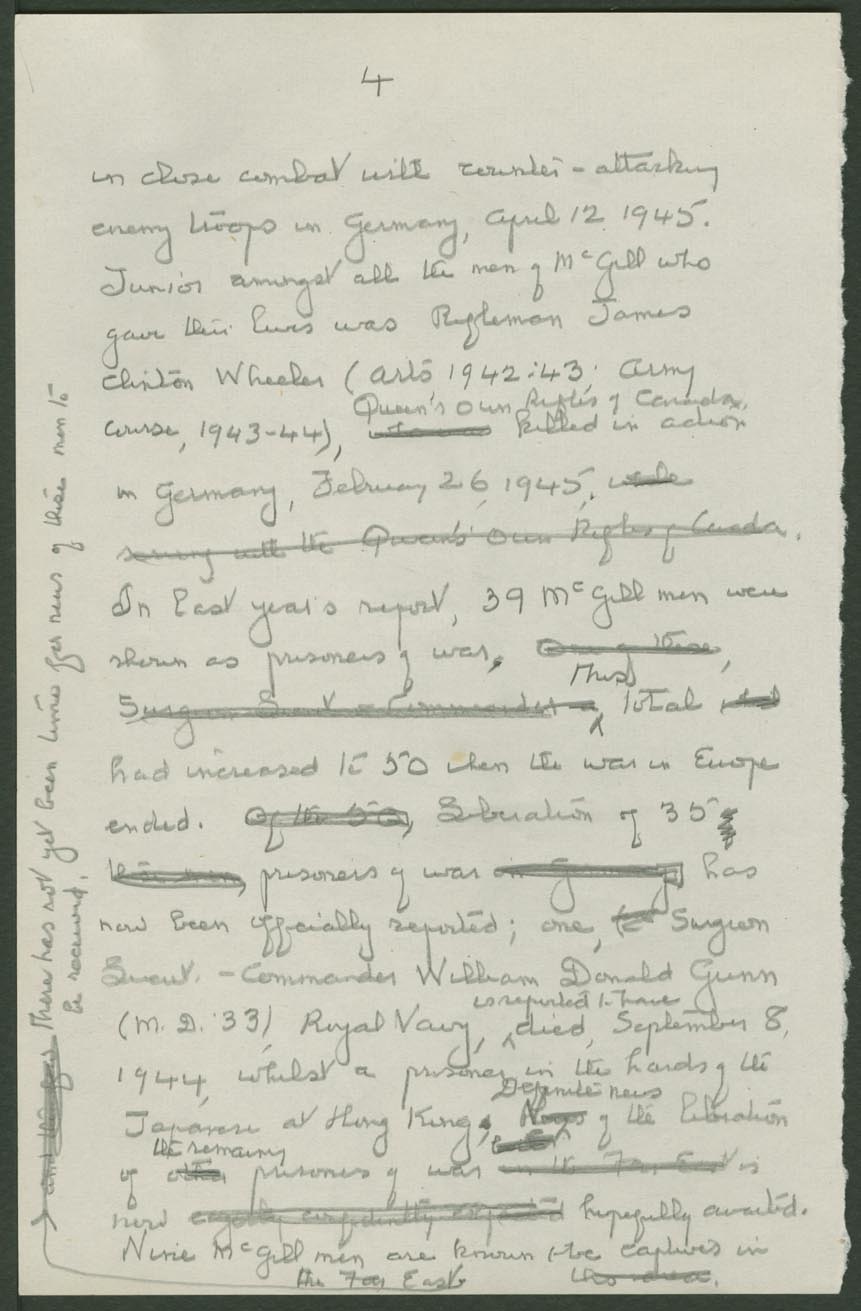 4
in close combat with counter-attacking
enemy troops in Germany, April 12 1945.
Junior amongst all the men of McGill who
gave their lives was Rifleman James
Clinton Wheeler (Arts 1942-43; Army
Queen's Own Rifles of Canada,
Course, 1943-44), who was killed in action
in Germany, February 26, 1945, while
serving with the Queen's Own Rifles of Canada.
In last year's report, 39 McGill men were
shown as prisoners of war. One of these,
This
Surgeon Lieut.-Commander total
had increased to 50 when the war in Europe
ended. Of the 50, Liberation of 35
these men, prisoners of war in Germany has
now been officially reported; one, Surgeon
Lieut.-Commander William Donald Gunn
is reported to have
(M.D. '33), Royal Navy, died, September 8,
1944, whilst a prisoner in the hands of the
Definite news
Japanese at Hong Kong. News of the liberation
the remaining
of other prisoners of war in the Far East is
now eagerly confidently expected hopefully awaited.
Nine McGill men are known to be captives in
the Far East this area.
There has not yet been time for news of these men to
be received.